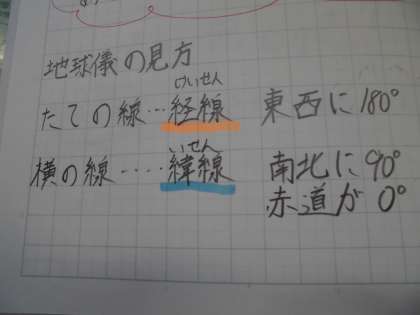 地球儀の見方
けいせん
たての線…経線 東西に180°
いせん
横の線‥‥緯線 南北に90°
赤道が0°